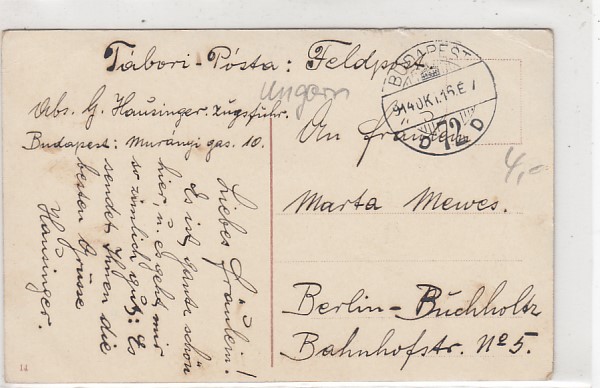 Tábori-Pósta: Feldpost.
Ungarn
BUDAPEST
914 OKT. 16. E 7
D 72 D
Abs. G. Hausinger. Zugsführ.
Budapest: Murányi gas. 10.
An Fräulein
Marta Mewes.
Berlin-Buchholz
Bahnhofstr. No 5.
4,-
Liebes Fräulein!
Es ist ganz schön
hier, u. es geht mir
so zimlich gut: Es
sendet Ihnen die
besten Grüsse
Hausinger.
14